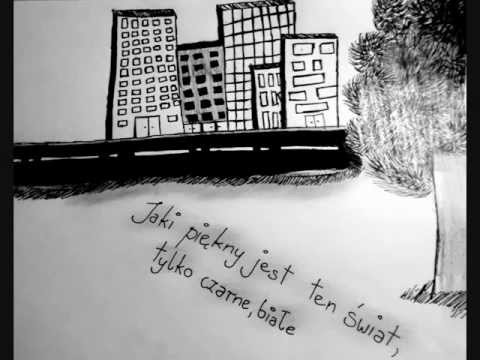 Jaki piękny jest ten świat,
tylko czarne, białe